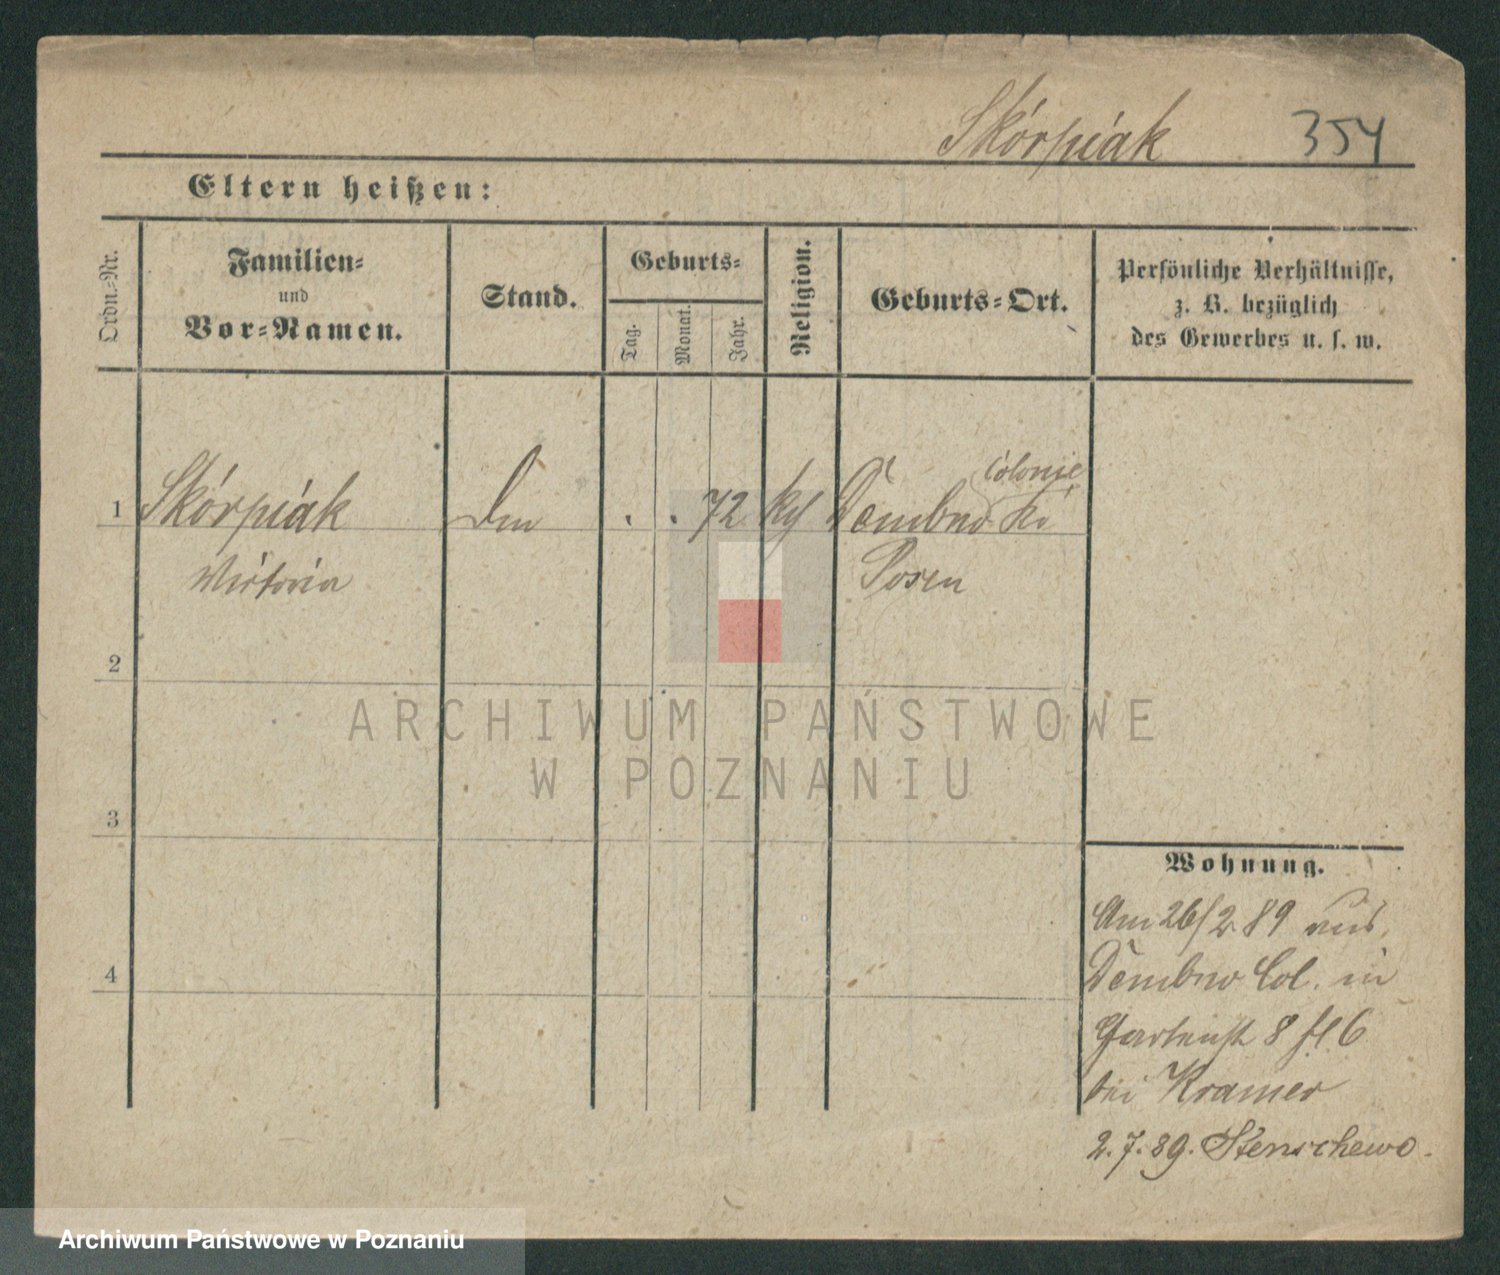 Skórpiak 354
Eltern heißen:
Ordn.-Nr.
Familien-
und
Vor-Namen.
Stand.
Geburts-
Tag.
Monat.
Jahr.
Religion.
Geburts-Ort.
Persönliche Verhältnisse,
z. B. bezüglich
des Gewerbes u. s. w.
1 Skórpiak . . 72 Dembno Colonie
Posen
2
3
4
ARCHIWUM PAŃSTWOWE
W POZNANIU
Wohnung.
Am 26/2 89 aus
Dembno Col. in
Gartenstr 8
bei Kramer
2.7.89. Stenschewo.
Archiwum Państwowe w Poznaniu